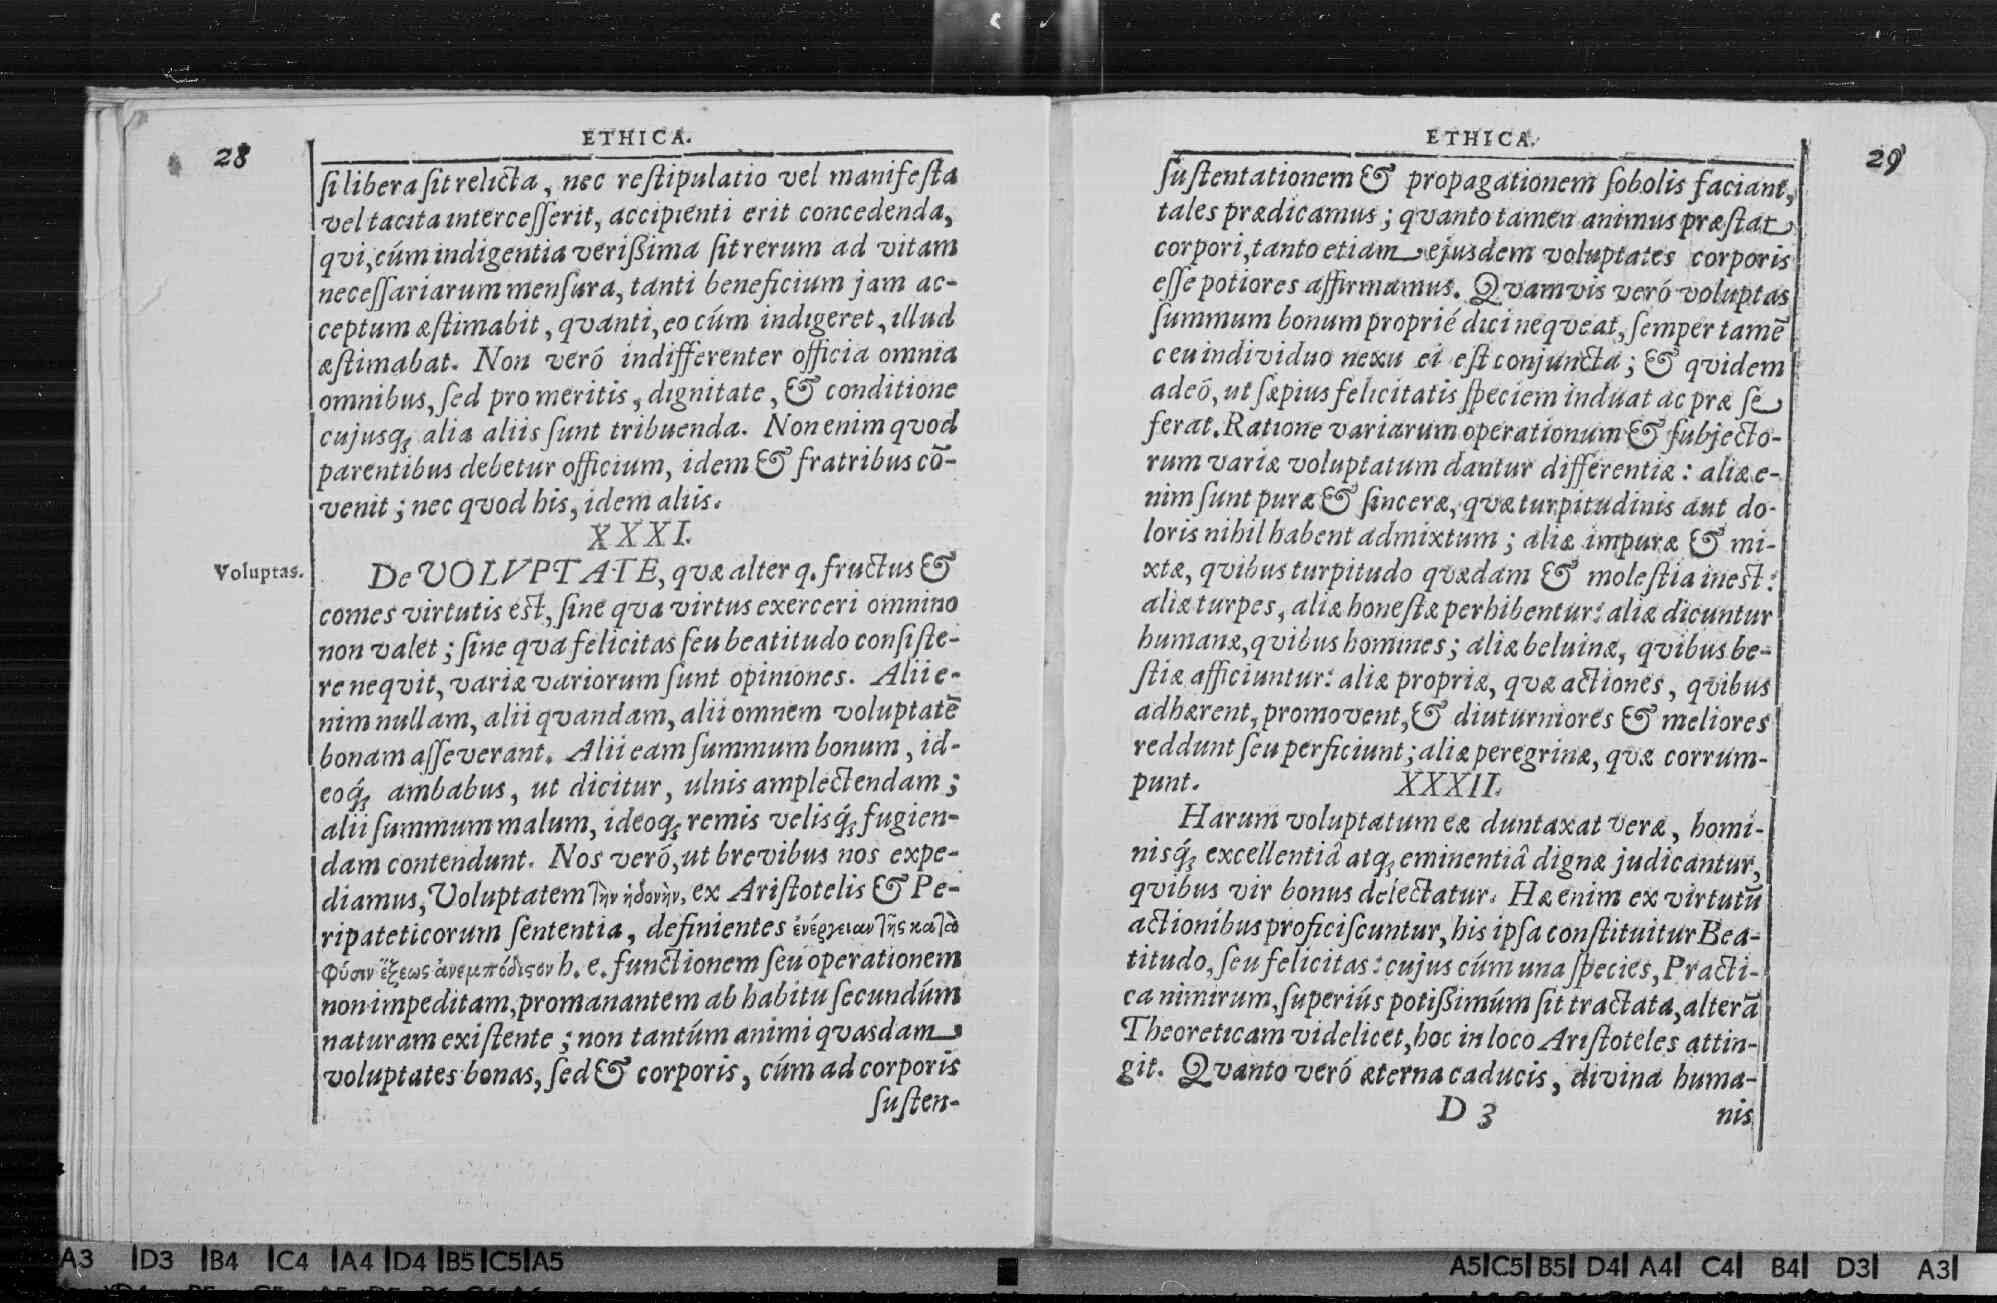 28
ETHICA.
ſi libera ſit relicta, nec reſtipulatio vel manifeſta
vel tacita interceſſerit, accipienti erit concedenda,
qvi, cúm indigentia verißima ſit rerum ad vitam
neceſſariarum menſura, tanti beneficium jam ac-
ceptum æſtimabit, qvanti, eo cúm indigeret, illud
æſtimabat. Non veró indifferenter officia omnia
omnibus, ſed pro meritis, dignitate, & conditione
cujusq; alia aliis ſunt tribuenda. Non enim qvod
parentibus debetur officium, idem & fratribus cō-
venit; nec qvod his, idem aliis.
XXXI.
Voluptas.
De VOLVPTATE, qvæ alter q. fructus &
comes virtutis est, ſine qva virtus exerceri omnino
non valet; ſine qva felicitas ſeu beatitudo conſiſte-
re neqvit, variæ variorum ſunt opiniones. Alii e-
nim nullam, alii qvandam, alii omnem voluptatē
bonam aſſeverant. Alii eam ſummum bonum, id-
eoq́; ambabus, ut dicitur, ulnis amplectendam;
alii ſummum malum, ideoq; remis velisq́; fugien-
dam contendunt. Nos veró, ut brevibus nos expe-
diamus, Voluptatem τὴν ἡδονὴν, ex Ariſtotelis & Pe-
ripateticorum ſententia, definientes ἐνέργειαν τῆς κατὰ
φύσιν ἕξεως ἀνεμπόδιϛον h. e. functionem ſeu operationem
non impeditam, promanantem ab habitu ſecundúm
naturam exiſtente; non tantúm animi qvasdam
voluptates bonas, ſed & corporis, cúm ad corporis
ſuſten-
ETHICA.
29
ſuſtentationem & propagationem ſobolis faciant,
tales prædicamus; qvanto tamen animus præſtat
corpori, tanto etiam ejusdem voluptates corporis
eſſe potiores affirmamus. Qvamvis veró voluptas
ſummum bonum proprié dici neqveat, ſemper tamē
ceu individuo nexu ei eſt conjuncta; & qvidem
adeó, ut ſæpius felicitatis ſpeciem induat ac præ ſe
ferat. Ratione variarum operationum & ſubjecto-
rum variæ voluptatum dantur differentiæ: aliæ e-
nim ſunt puræ & ſinceræ, qvæ turpitudinis aut do-
loris nihil habent admixtum; aliæ impuræ & mi-
xtæ, qvibus turpitudo qvædam & moleſtia inest:
aliæ turpes, aliæ honeſtæ perhibentur: aliæ dicuntur
humanæ, qvibus homines; aliæ beluinæ, qvibus be-
ſtiæ afficiuntur: aliæ propriæ, qvæ actiones, qvibus
adhærent, promovent, & diuturniores & meliores
reddunt ſeu perficiunt; aliæ peregrinæ, qvæ corrum-
punt.
XXXII.
Harum voluptatum eæ duntaxat veræ, homi-
nisq́; excellentiâ atq; eminentiâ dignæ judicantur,
qvibus vir bonus delectatur. Hæ enim ex virtutū
actionibus proficiſcuntur, his ipſa conſtituitur Bea-
titudo, ſeu felicitas: cujus cúm una ſpecies, Practi-
ca nimirum, ſuperiús potißimúm ſit tractata, alterā
Theoreticam videlicet, hoc in loco Ariſtoteles attin-
git. Qvanto veró æterna caducis, divina huma-
D 3
nis
A3 D3 B4 C4 A4 D4 B5 C5 A5
A5 C5 B5 D4 A4 C4 B4 D3 A3